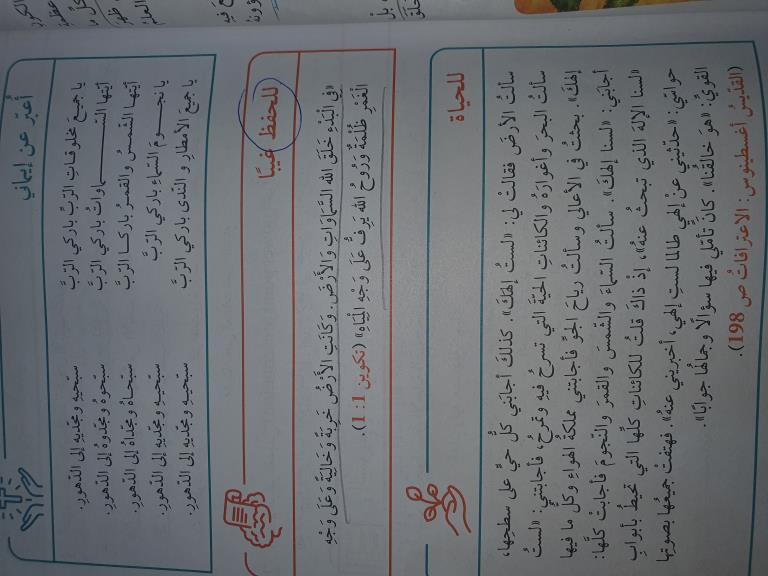 للحياة
سألتُ الأرضَ فقالتْ لي: «لستُ إلهَكَ». كذلكَ أجابَني كلُّ حيٍّ على سطحِها،
سألتُ البحرَ وأغوارَهُ والكائناتِ الحيّةَ التي تسرحُ فيهِ وتمرحُ، فأجابتني: «لستُ
إلهَكَ». بحثتُ في الأعالي وسألتُ رياحَ الجوِّ فأجابتني مملكةُ الهواءِ وكلُّ ما فيها
أجابَني: «لسنا إلهَكَ». سألتُ السّماءَ والشّمسَ والقمرَ والنّجومَ فأجابتْ كلُّها:
«لسنا الإلهَ الذي تبحثُ عنهُ»، إذْ ذاكَ قلتُ للكائناتِ كلِّها التي تحيطُ بأبوابِ
حواسّي: «حدّثيني عنْ إلهي طالما لستِ إلهي، أخبريني عنهُ». فهتفتْ جميعُها بصوتِها
القويِّ: «هوَ خالقُنا». كانَ تأمّلي فيها سؤالًا وجمالُها جوابًا».
(القدّيسُ أغسطينوس: الاعترافاتُ ص 198).
للحفظِ غيبًا
«في الْبَدْءِ خَلَقَ اللهُ السَّمَاوَاتِ وَالأَرْضَ. وَكَانَتِ الأَرْضُ خَرِبَةً وَخَالِيَةً وَعَلَى وَجْهِ
الْغَمْرِ ظُلْمَةٌ وَرُوحُ اللهِ يَرِفُّ عَلَى وَجْهِ الْمِيَاهِ» (تكوين 1: 1).
أُعبّرُ عن إيماني
يا جميعَ مخلوقاتِ الرّبِّ باركي الرّبَّ سبّحيهِ ومجّديهِ إلى الدّهورِ.
أيّتها السّماواتُ باركي الرّبَّ سبّحوهُ ومجّدوهُ إلى الدّهورِ.
أيّتها الشّمسُ والقمرُ باركا الرّبَّ سبّحاهُ ومجّداهُ إلى الدّهورِ.
يا نجومَ السّماءِ باركي الرّبَّ سبّحيهِ ومجّديهِ إلى الدّهورِ.
يا جميعَ الأمطارِ والنّدى باركي الرّبَّ سبّحيهِ ومجّديهِ إلى الدّهورِ.